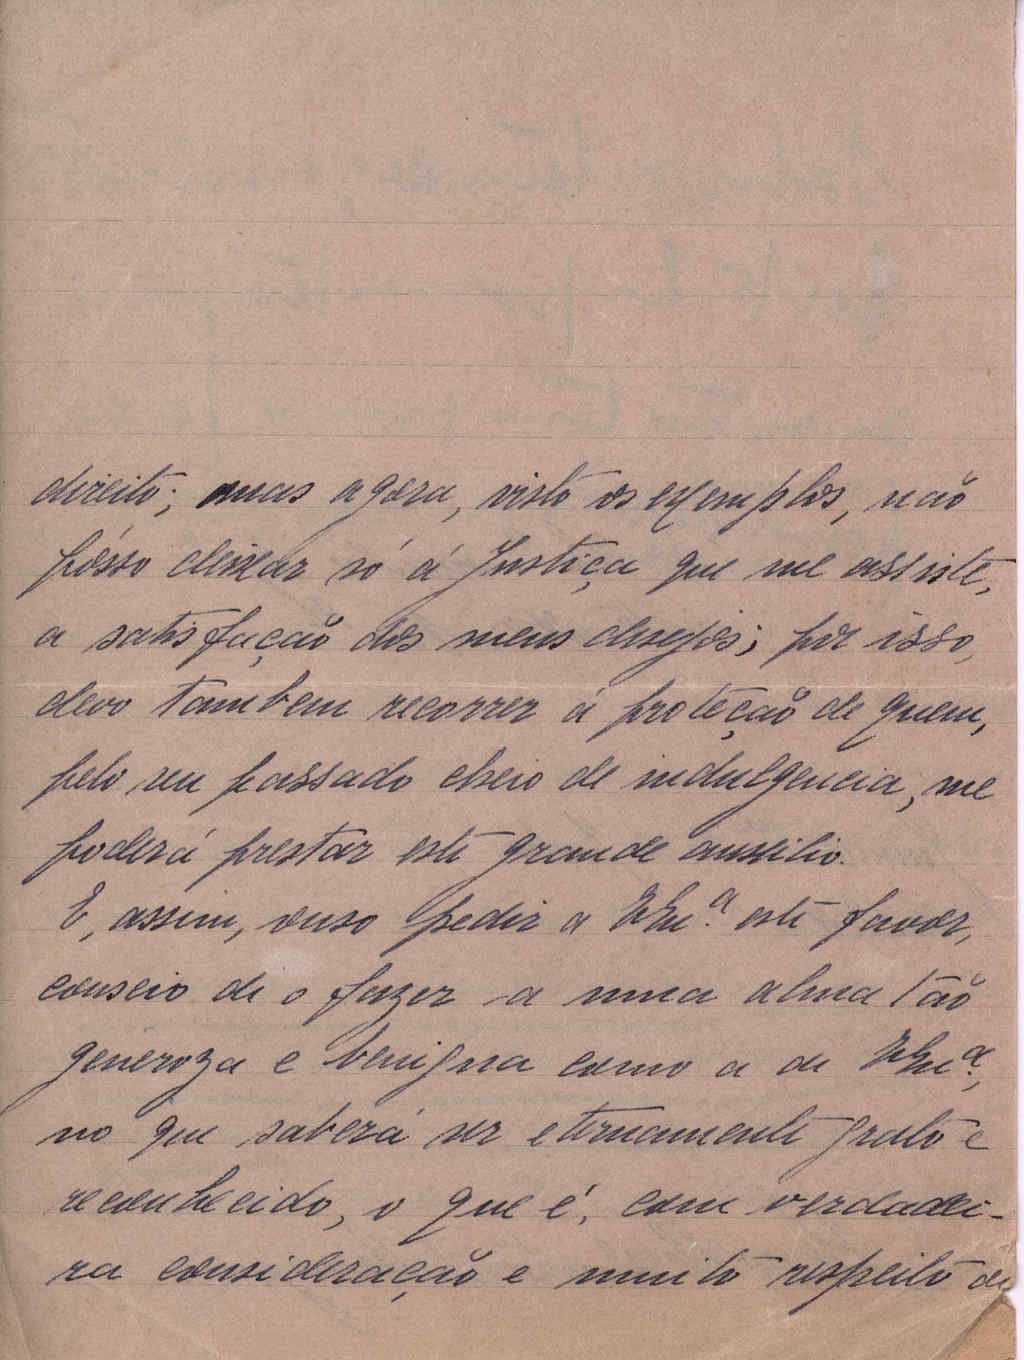 direito; mas agora, visto os exemplos, não
pósso deixar só á Justiça que me assiste,
a satisfação dos meus desejos; pôr isso,
devo tambem recorrer á proteção de quem,
pelo seu passado cheio de indulgencia, me
poderá prestar este grande auxilio.
E, assim, ouso pedir a VExª. este favor,
conscio de o fazer a uma alma tão
generoza e benigna como a de VExª,
no que saberá ser eternamente grato e
reconhecido, o que é, com verdadei-
ra consideração e muito respeito de